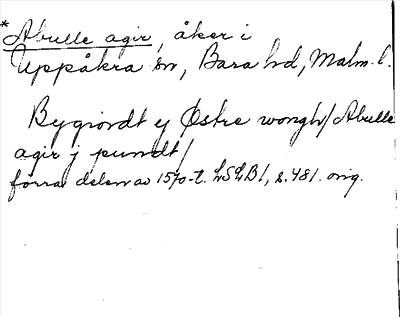 *Abulle agir, åker i
Uppåkra sn, Bara hd, Malm. l.
Bygiordt y Østre wongh / Abulle
agir j pundt /
förra delen av 1570-t. LSLB1, s. 481. orig.